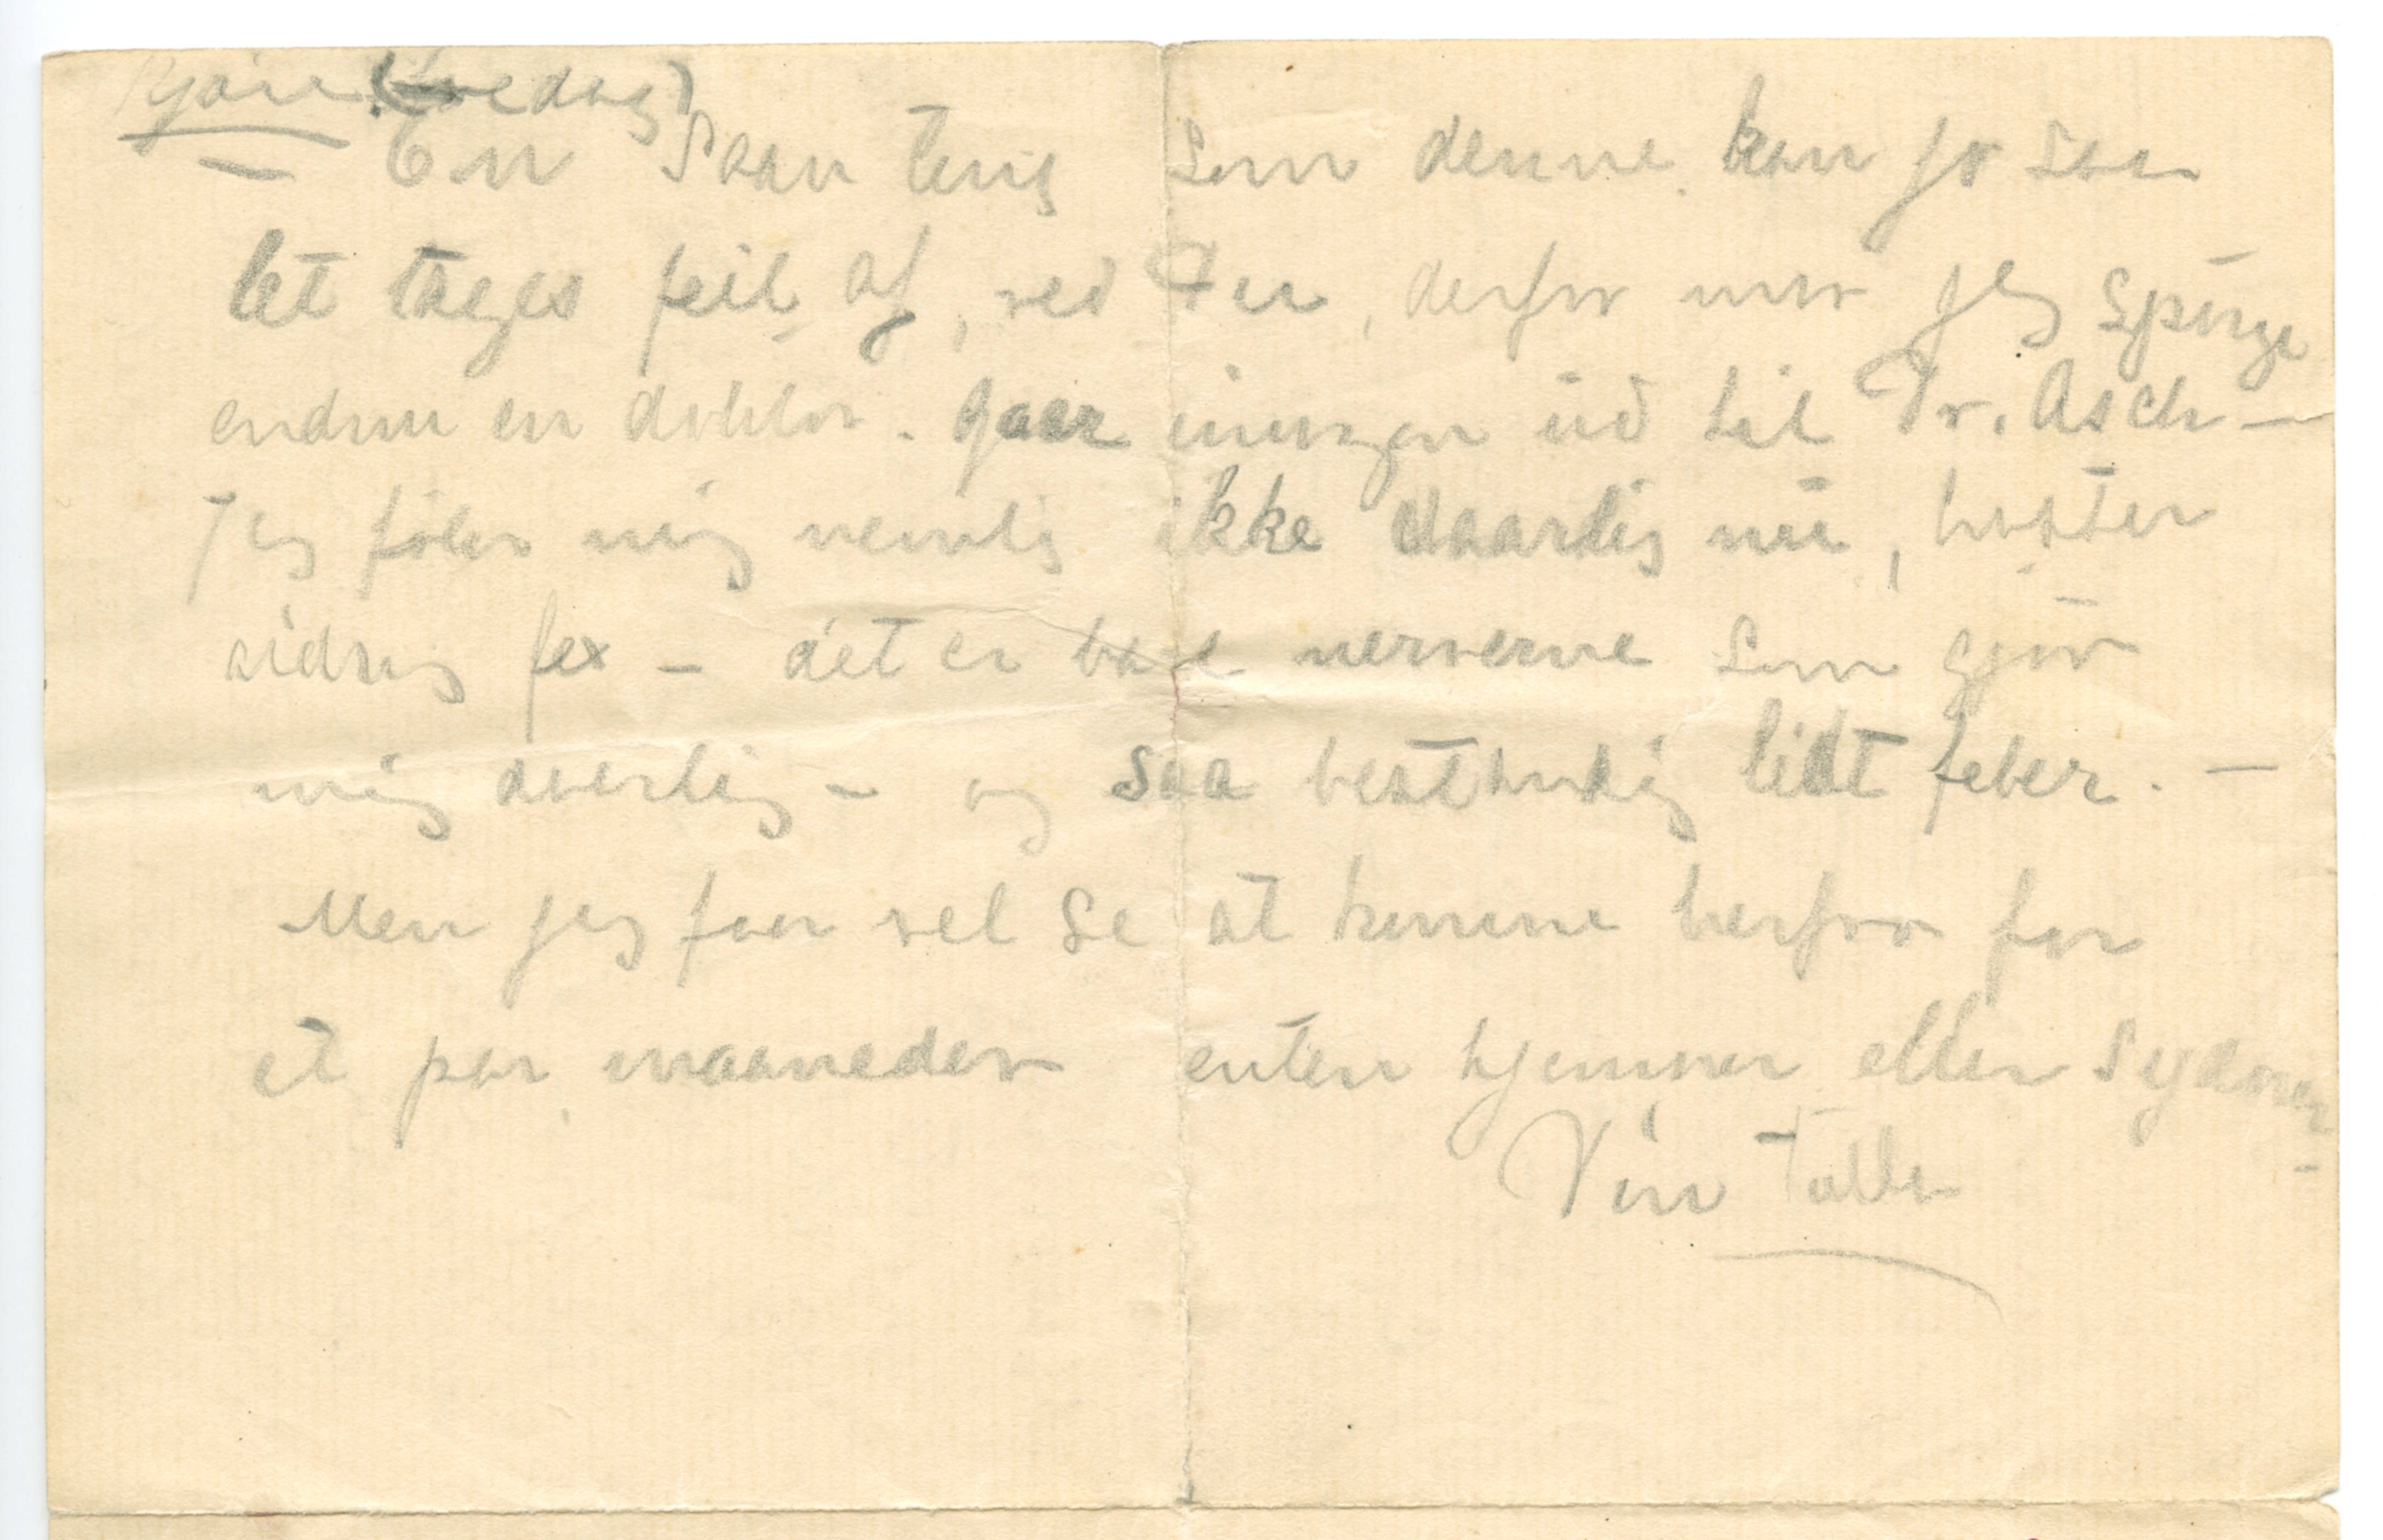 Kjære (Fredag)
— En saan ting som denne kan jo saa
let tages feil af, ved Der, derfor maa jeg spørge
endnu en doktor. Gaar imorgen ud til Dr. Asch —
Jeg føler mig nemlig ikke daarlig nu, hoster
aldrig fex — det er bare nerverne som gjør
mig daarlig — og saa bestandig lidt feber. —
Men jeg faar vel se at komme herfra for
et par maaneder enten hjemmer eller sydover
Din Tulla